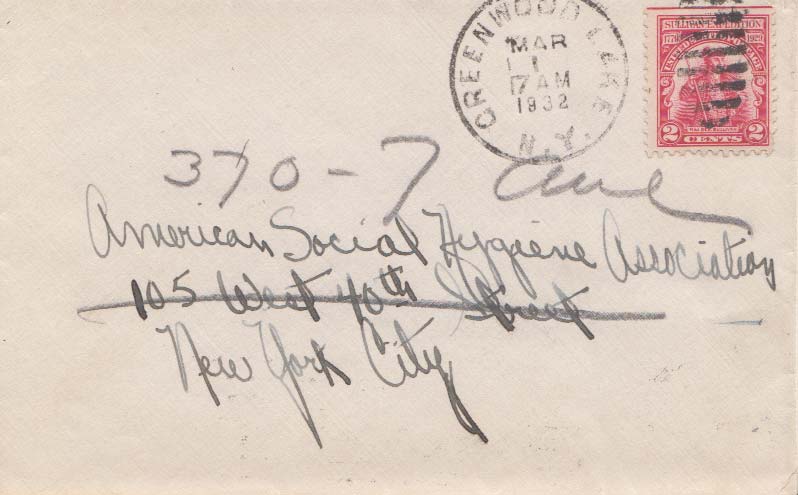 GREENWOOD LAKE
N.Y.
MAR
1
7 AM
1932
SULLIVAN EXPEDITION
1779 1929
UNITED STATES POSTAGE
2 CENTS 2
370 - 7 ave
American Social Hygiene Association
105 West 40th Street
New York City